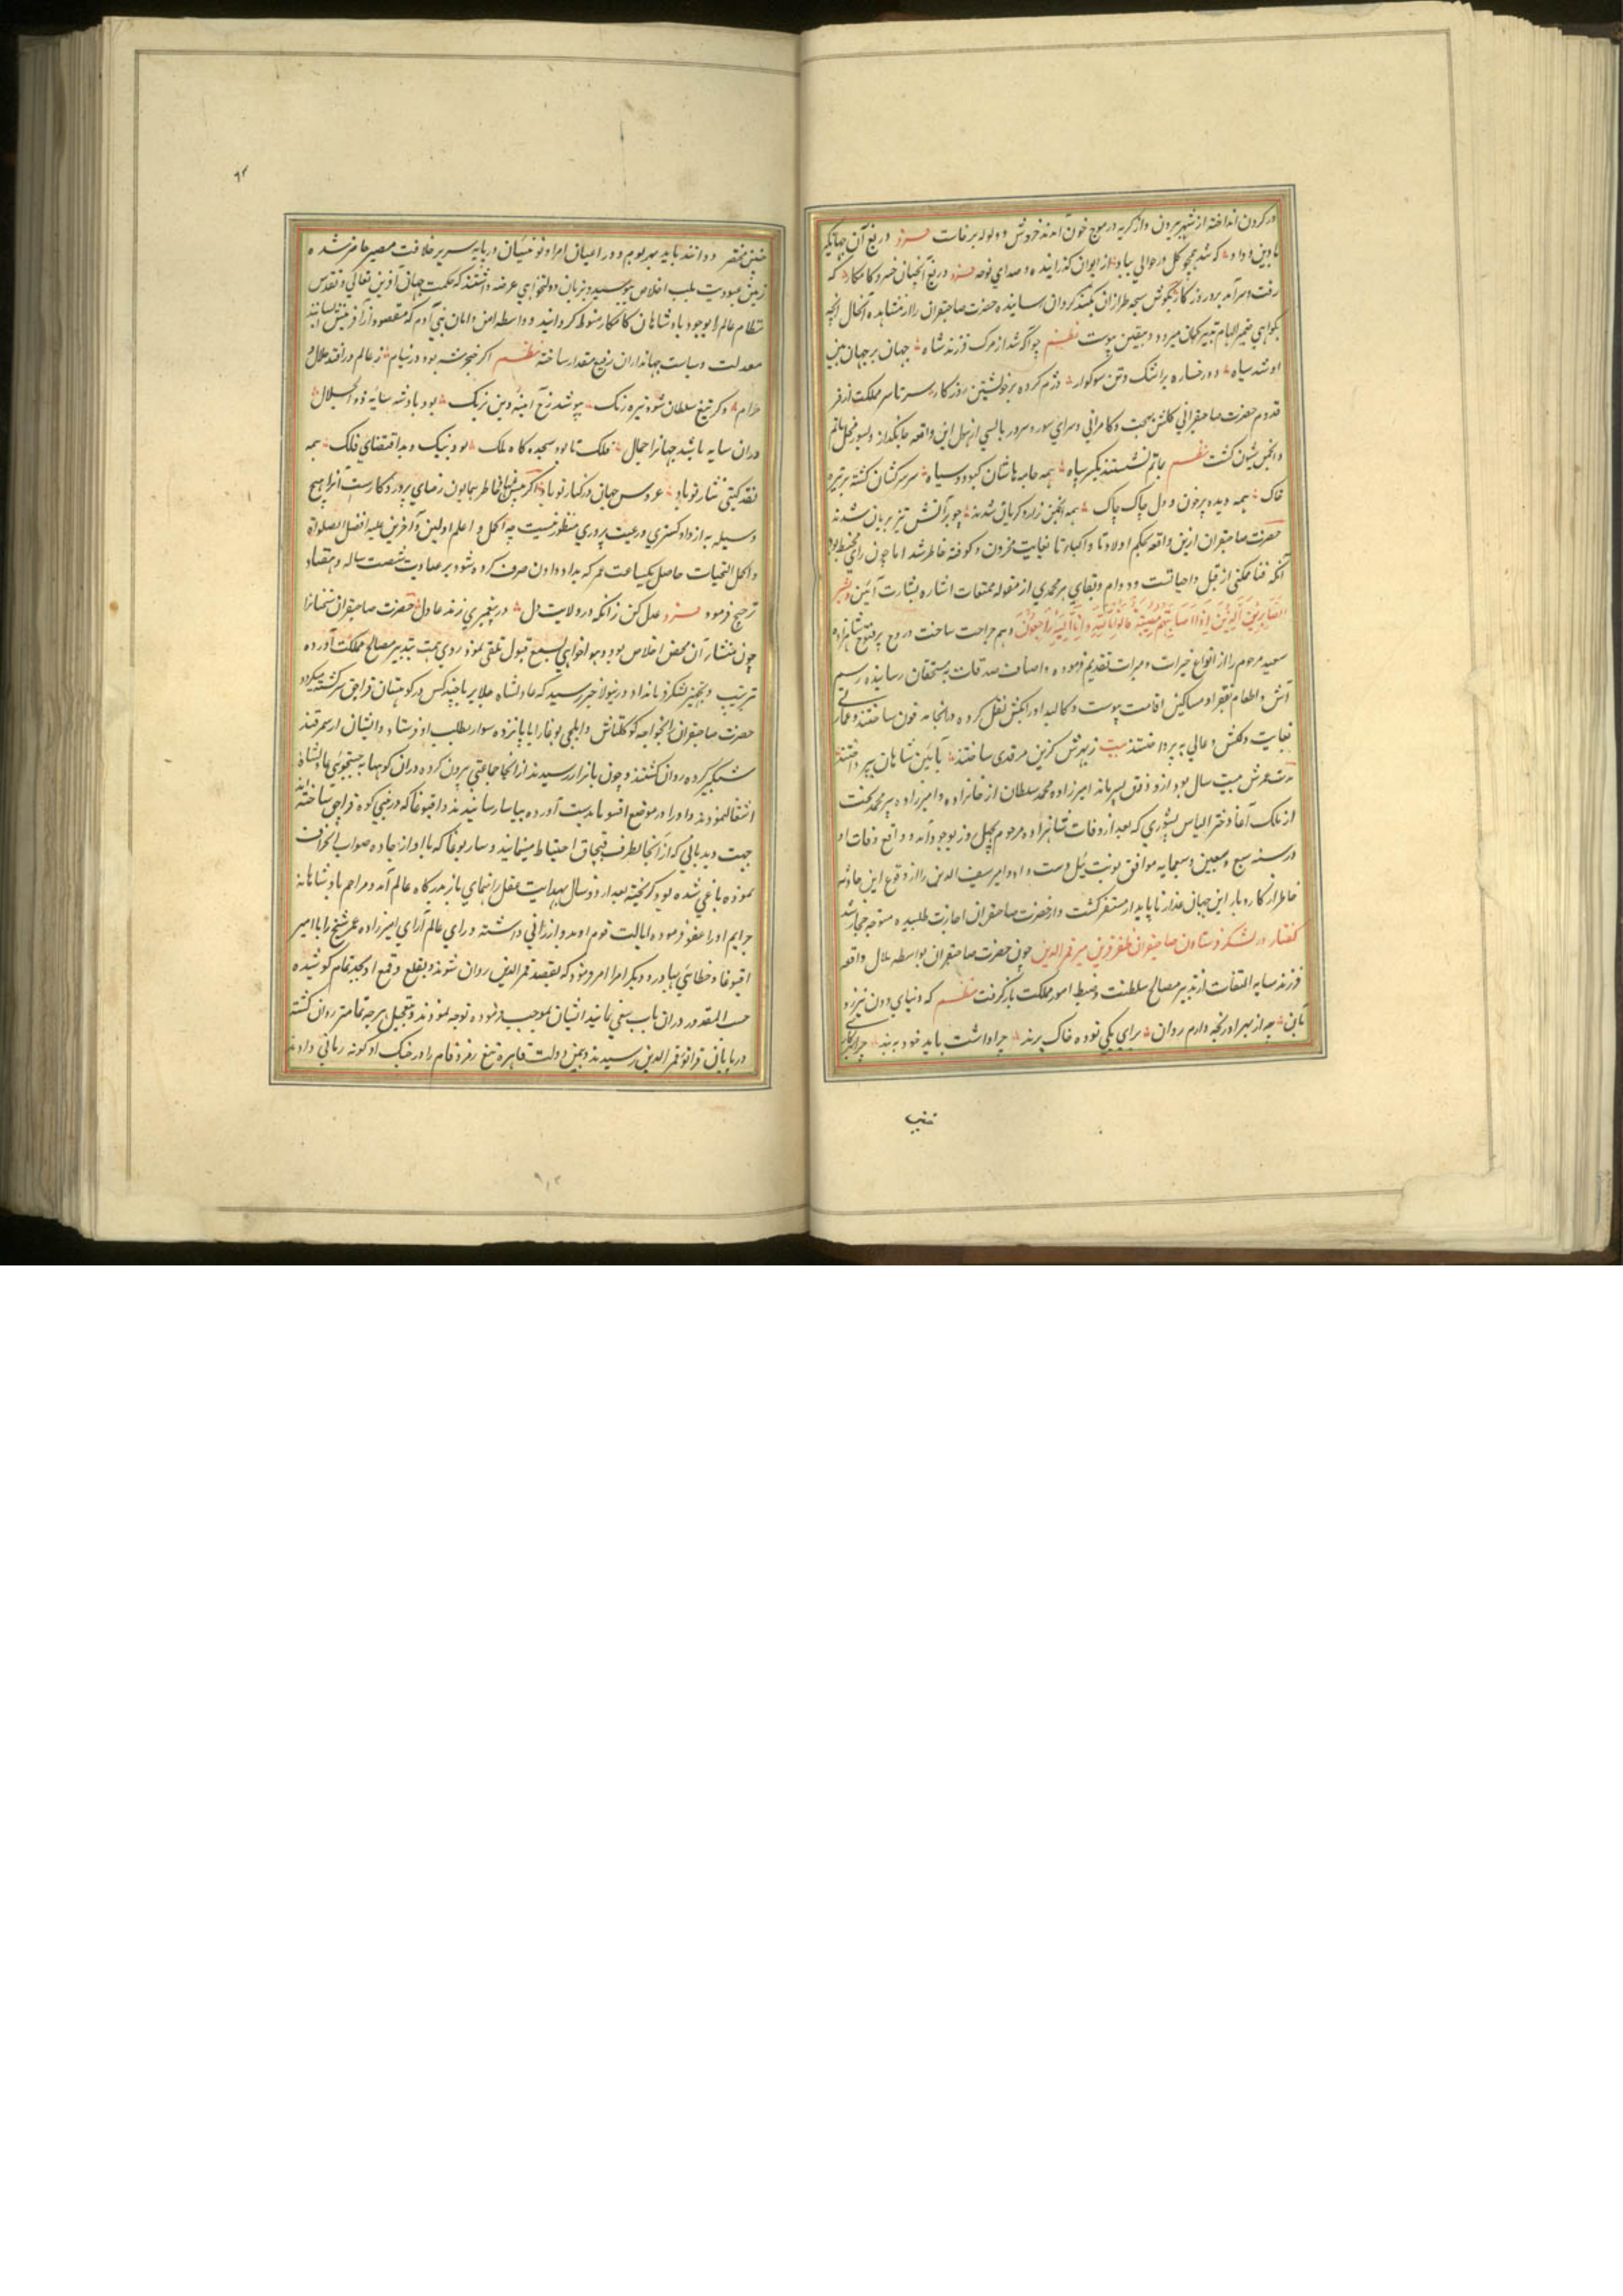 در کردن انداخته از شهر بیرون و از کریه در موج خون آمدند خروش و ولوله برخاست فرد دریغ آن جهانگیر
با دین و داد که شد همچو کل در حوالی بباد از ایوان گذرانیده و صدای نوحه فرد دریغ آنچنان خسرو کامکار که
رفت و سرآمد برو روزکار بکوش سبحه طرازان گنبد گردان رسانیده حضرت صاحبقران را از مشاهده آنحال آنچه
بکواهی ضمیر الهام تعبیر کمان میبرد بیقین پیوست نظم چو آگه شد از مرک فرزند شاه جهان بر جهان بین
او شد سیاه دو رخساره پر اشک و تن سوکوار دژم کرده بر خویشتن روزکار سرتاسر مملکت از فر
قدوم حضرت صاحبقرانی کلشن بهجت و کامرانی و سرای سور و سرور بایستی از هول این واقعه جانگداز دلسوز محل ماتم
و انجمن شیون کشت نظم بماتم نشستند یکسر سپاه همه جامه هاشان کبود و سیاه سر سرکشان کشته بر تیره
خاک همه دیده پر خون و دل چاک چاک همه انجمن زار و کریان شدند چو بر آتش تیز بریان شدند
حضرت صاحبقران ازین واقعه بحکم اولادنا و اکبادنا بغایت محزون و کوفته خاطر شد اما چون رای محیط بود
آنکه فنا ممکنی از قبل واجباتست و دوام و بقای بر محمدی از مقوله ممتنعات اشاره بشارت آئین و بشر
الصابرین الذین اذا اصابتهم مصیبة قالوا انا لله و انا الیه راجعون مرهم جراحت ساخت و روح پرفتوح شاهزاده
سعید مرحوم را از انواع خیرات و مبرات تقدیم فرموده و اصناف صدقات بمستحقان رسانیده رسم
آش و اطعام فقرا و مساکین اقامت پیوست و کالبد او را بکش نقل کرده در آنجا مدفون ساختند و عمارتی
بغایت دلکش و عالی بپرداختند بیت زبهرش کزین مرقدی ساختند بآئین شاهان بپرداختند
مدت عمرش بیست سال بود ازو دو پسر ماند امیرزاده محمد سلطان از خانزاده و امیرزاده پیر محمد بحنت
از ملک آغا دختر الیاس یسوری که بعد از وفات شاهزاده مرحوم بچهل روز بوجود آمد و واقع وفات او
در سنه سبع و سبعین و سبعمایه موافق یونت ییل دست داد و امیر سیف الدین را از وقوع این حادثه
خاطر از کار و بار این جهان غدار ناپایدار متنفر کشت و از حضرت صاحبقران اجازت طلبیده متوجه حجاز شد
کفتار در لشکر فرستادن صاحبقران ظفر قرین بر قمرالدین چون حضرت صاحبقران بواسطه ملال واقعه
فرزند سایه التفات از تدبیر مصالح سلطنت و ضبط امور مملکت باز گرفت نظم که دنیای دون نیرزد
بآن چه از بهر او رنجه دارم روان برای یکی توده خاک پرند چرا داشت باید خود به بند
چنین مختصر
چنین مختصر در اعیان امرا و نوئینان در پایه سریر خلافت مصیر حاضر شده
زمین عبودیت بلب اخلاص ببوسید و بزبان دولتخواهی عرضه داشتند که حکمت جهان آفرین تعالی و تقدس
نظام عالم را بوجود پادشاهان کامکار منوط گردانید و واسطه امن و امان بنی آدم که مقصود از آفرینش
معدلت و سیاست جهانداران رفیع مقدار ساخته نظم اگر خنجر شه بود در نیام ز عالم در افتد حلال و
حرام و کر تیغ سلطان شود تیره رنک بپوشد رخ آینه دین زنک بود پادشه سایه ذو الجلال
در آن سایه باشد جهانرا جمال فلک تا بود سجده کاه ملک بود نیک و بد اقتضای فلک همه
نقد کیتی نثار تو باد عروس جهان در کنار تو باد اکر پیش خاطر همایون رضای پروردکارست آنرا هیچ
وسیله به از داد کستری و رعیت پروری منظور نیست چه اکمل و اعلم اولین و آخرین علیه افضل الصلواة
و اکمل التحیات حاصل یکساعت عمر که بداد دادن صرف کرده شود بر عبادت شصت ساله و هفتاد
ترجیح فرمود فرد عدل کن زانکه در ولایت دل در پیغمبری زند عادل حضرت صاحبقران سخنانرا
چون منشاء آن محض اخلاص بود و هواخواهی بسمع قبول تلقی نمود و روی همت بتدبیر مصالح مملکت آورده
ترتیب و تجهیز لشکر فرمانداد درینولا خبر رسید که عادلشاه جلایر با چند کس در کوهستان قراچق سرکشته میکردد
حضرت صاحبقران خواجه کوکلتاش و ایلچی بوغا را با پانزده سوار بطلب او فرستاد و ایشان از سمرقند
شبگیر کرده روان کشتند و چون باترار رسیدند از انجا جماعتی بیرون کرده در آن کوهها بجستجوی عادلشاه
اشتغال نمودند و او را در موضع اقسوما بدست آورده بیاسا رسانیدند و اقسوما که در پی کوه قراچق ساخته اند
جهت دیدبانی که از آنجا بطرف قپچاق احتیاط مینمایند و ساربوغا که با او از جاده صواب انحراف
نموده باغی شده بود کریخته بعد از دو سال بهدایت عقل رانمای باز بدرکاه عالم آمد و مراحم پادشاهانه
جرایم او را عفو فرموده ایالت قوم او بدو ارزانی داشته و رای عالم آرای امیرزاده عمر شیخ را با امیر
اقبوغا و خطائی بهادر و دیکر امرا امر فرمود که بقصد قمرالدین روان شوند و بقلع و قمع او بجد تمام کوشیده
حسب المقدور در آن باب سعی نمایند ایشان بموجب فرموده توجه نمودند و بتعجیل هرچه تمامتر روان کشته
در بیابان قراتو بقمرالدین رسیدند و بیمن دولت قاهره تیغ زمرد فام را در جنک او کونه رمانی دادند